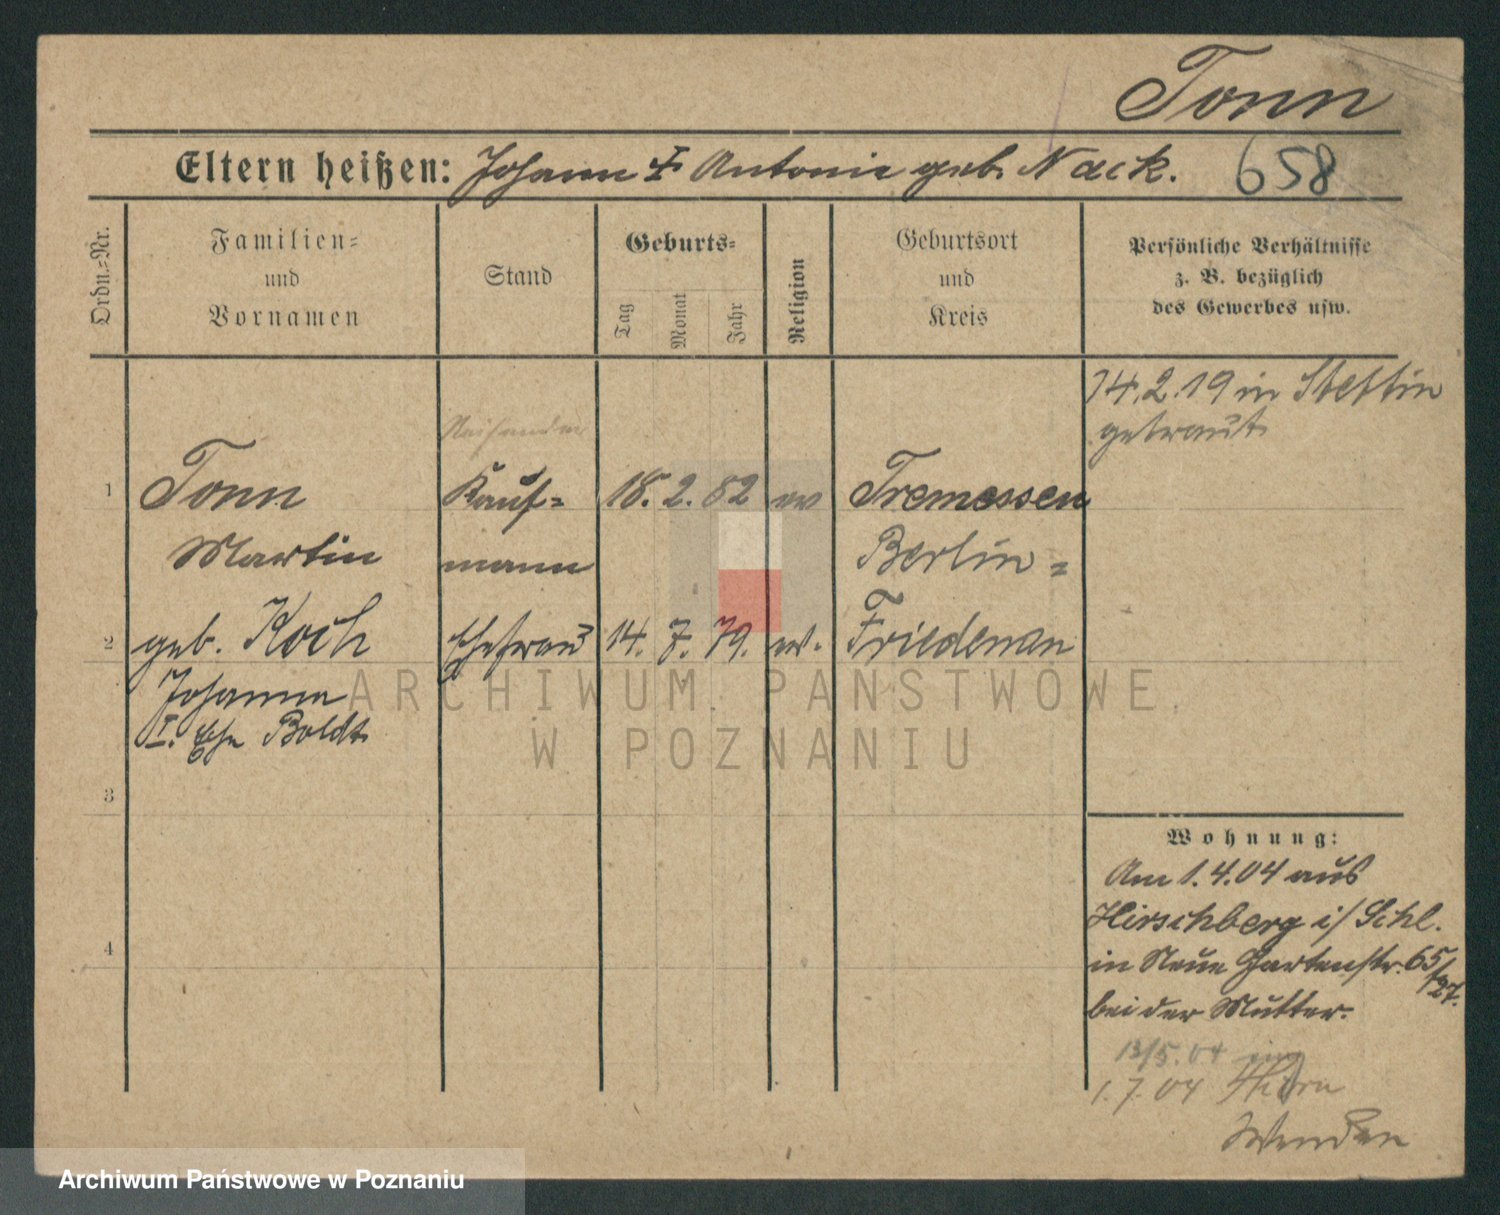 Tonn
Eltern heißen: Johann † Antonie geb. Nack. 658
Ordn.=Nr.
Familien=
und
Vornamen
Stand
Geburts=
Tag
Monat
Jahr
Religion
Geburtsort
und
Kreis
Persönliche Verhältnisse
z. B. bezüglich
des Gewerbes usw.
14.2.19 in Stettin
getraut
Reisender
1 Tonn Kauf= 18. 2. 82 ev Tremessen
Martin mann Berlin=
2 geb. Koch Ehefrau 14. 7. 79. ev. Friedenau
Johanna
I. Ehe Boldt
3
4
Wohnung:
Am 1.4.04 aus
Hirschberg i/Schl.
in Neue Gartenstr. 65/27.
bei der Mutter.
13/5.04
1.7.04 Thorn
ARCHIWUM PAŃSTWOWE
W POZNANIU
Archiwum Państwowe w Poznaniu